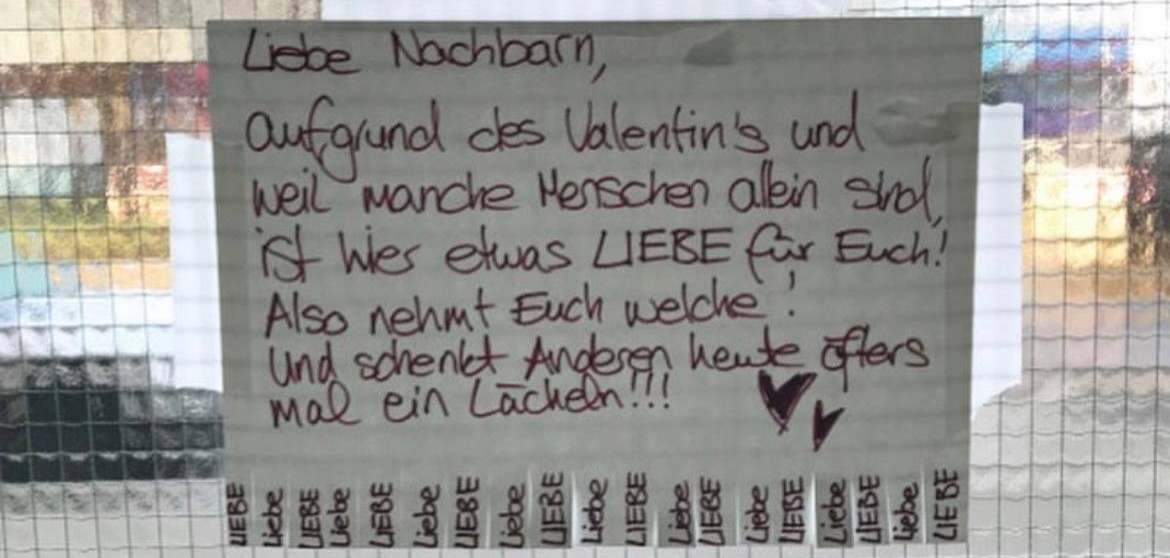 Liebe Nachbarn,
aufgrund des Valentin's und
weil manche Menschen allein sind,
ist hier etwas LIEBE für Euch!
Also nehmt Euch welche!
Und schenkt Anderen heute öfters
mal ein Lächeln!!!
LIEBE Liebe LIEBE Liebe LIEBE Liebe LIEBE Liebe LIEBE Liebe LIEBE Liebe LIEBE Liebe LIEBE Liebe LIEBE Liebe LIEBE